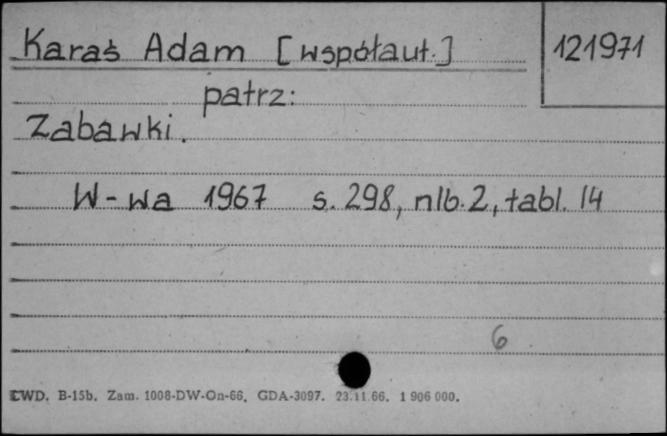 Karaś Adam [współaut.] 121971
patrz:
Zabawki.
W-wa 1967 s. 298, nlb. 2, tabl. 14
6
CWD. B-15b. Zam. 1008-DW-On-66. GDA-3097. 23.11.66. 1 906 000.